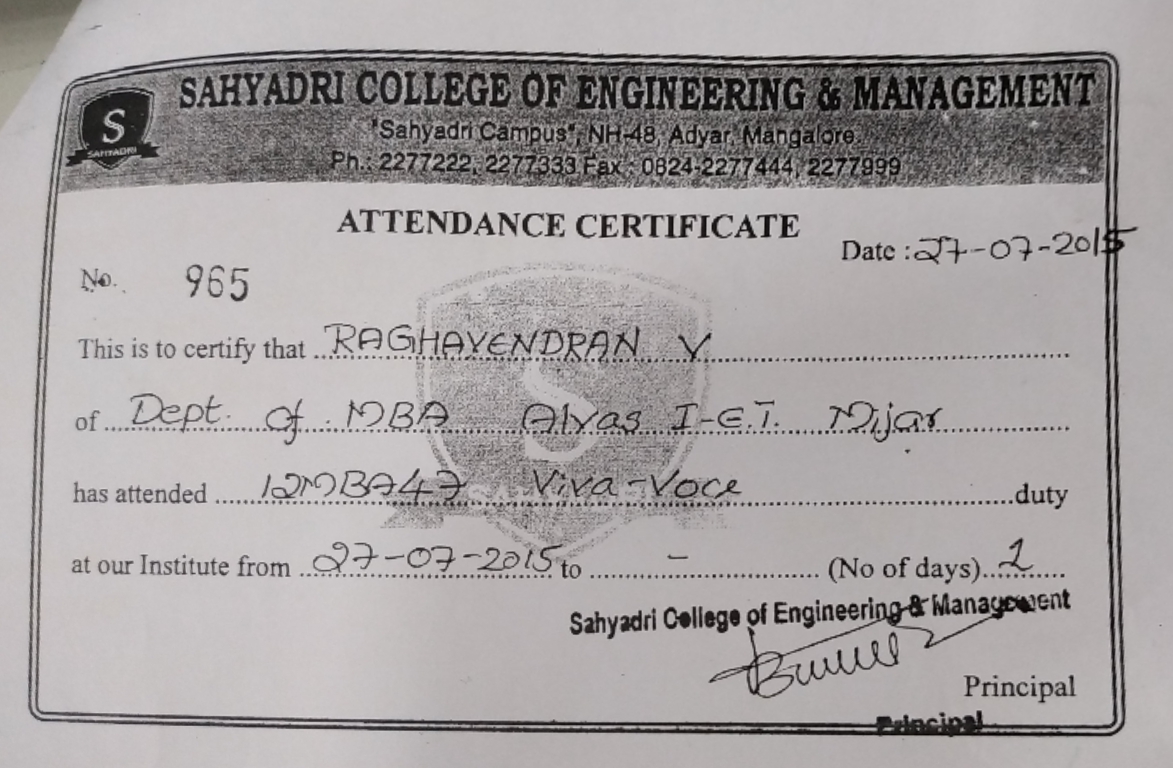 SAHYADRI COLLEGE OF ENGINEERING & MANAGEMENT
S
SAHYADRI
"Sahyadri Campus", NH-48, Adyar, Mangalore.
Ph.: 2277222, 2277333 Fax : 0824-2277444, 2277999
ATTENDANCE CERTIFICATE
Date : 27-07-2015
No. 965
This is to certify that RAGHAVENDRAN V
of Dept. of MBA Alvas I-E.T. Mijar
has attended 12MBA47 Viva-Voce duty
at our Institute from 27-07-2015 to - (No of days) 1
Sahyadri College of Engineering & Management
Principal
Principal